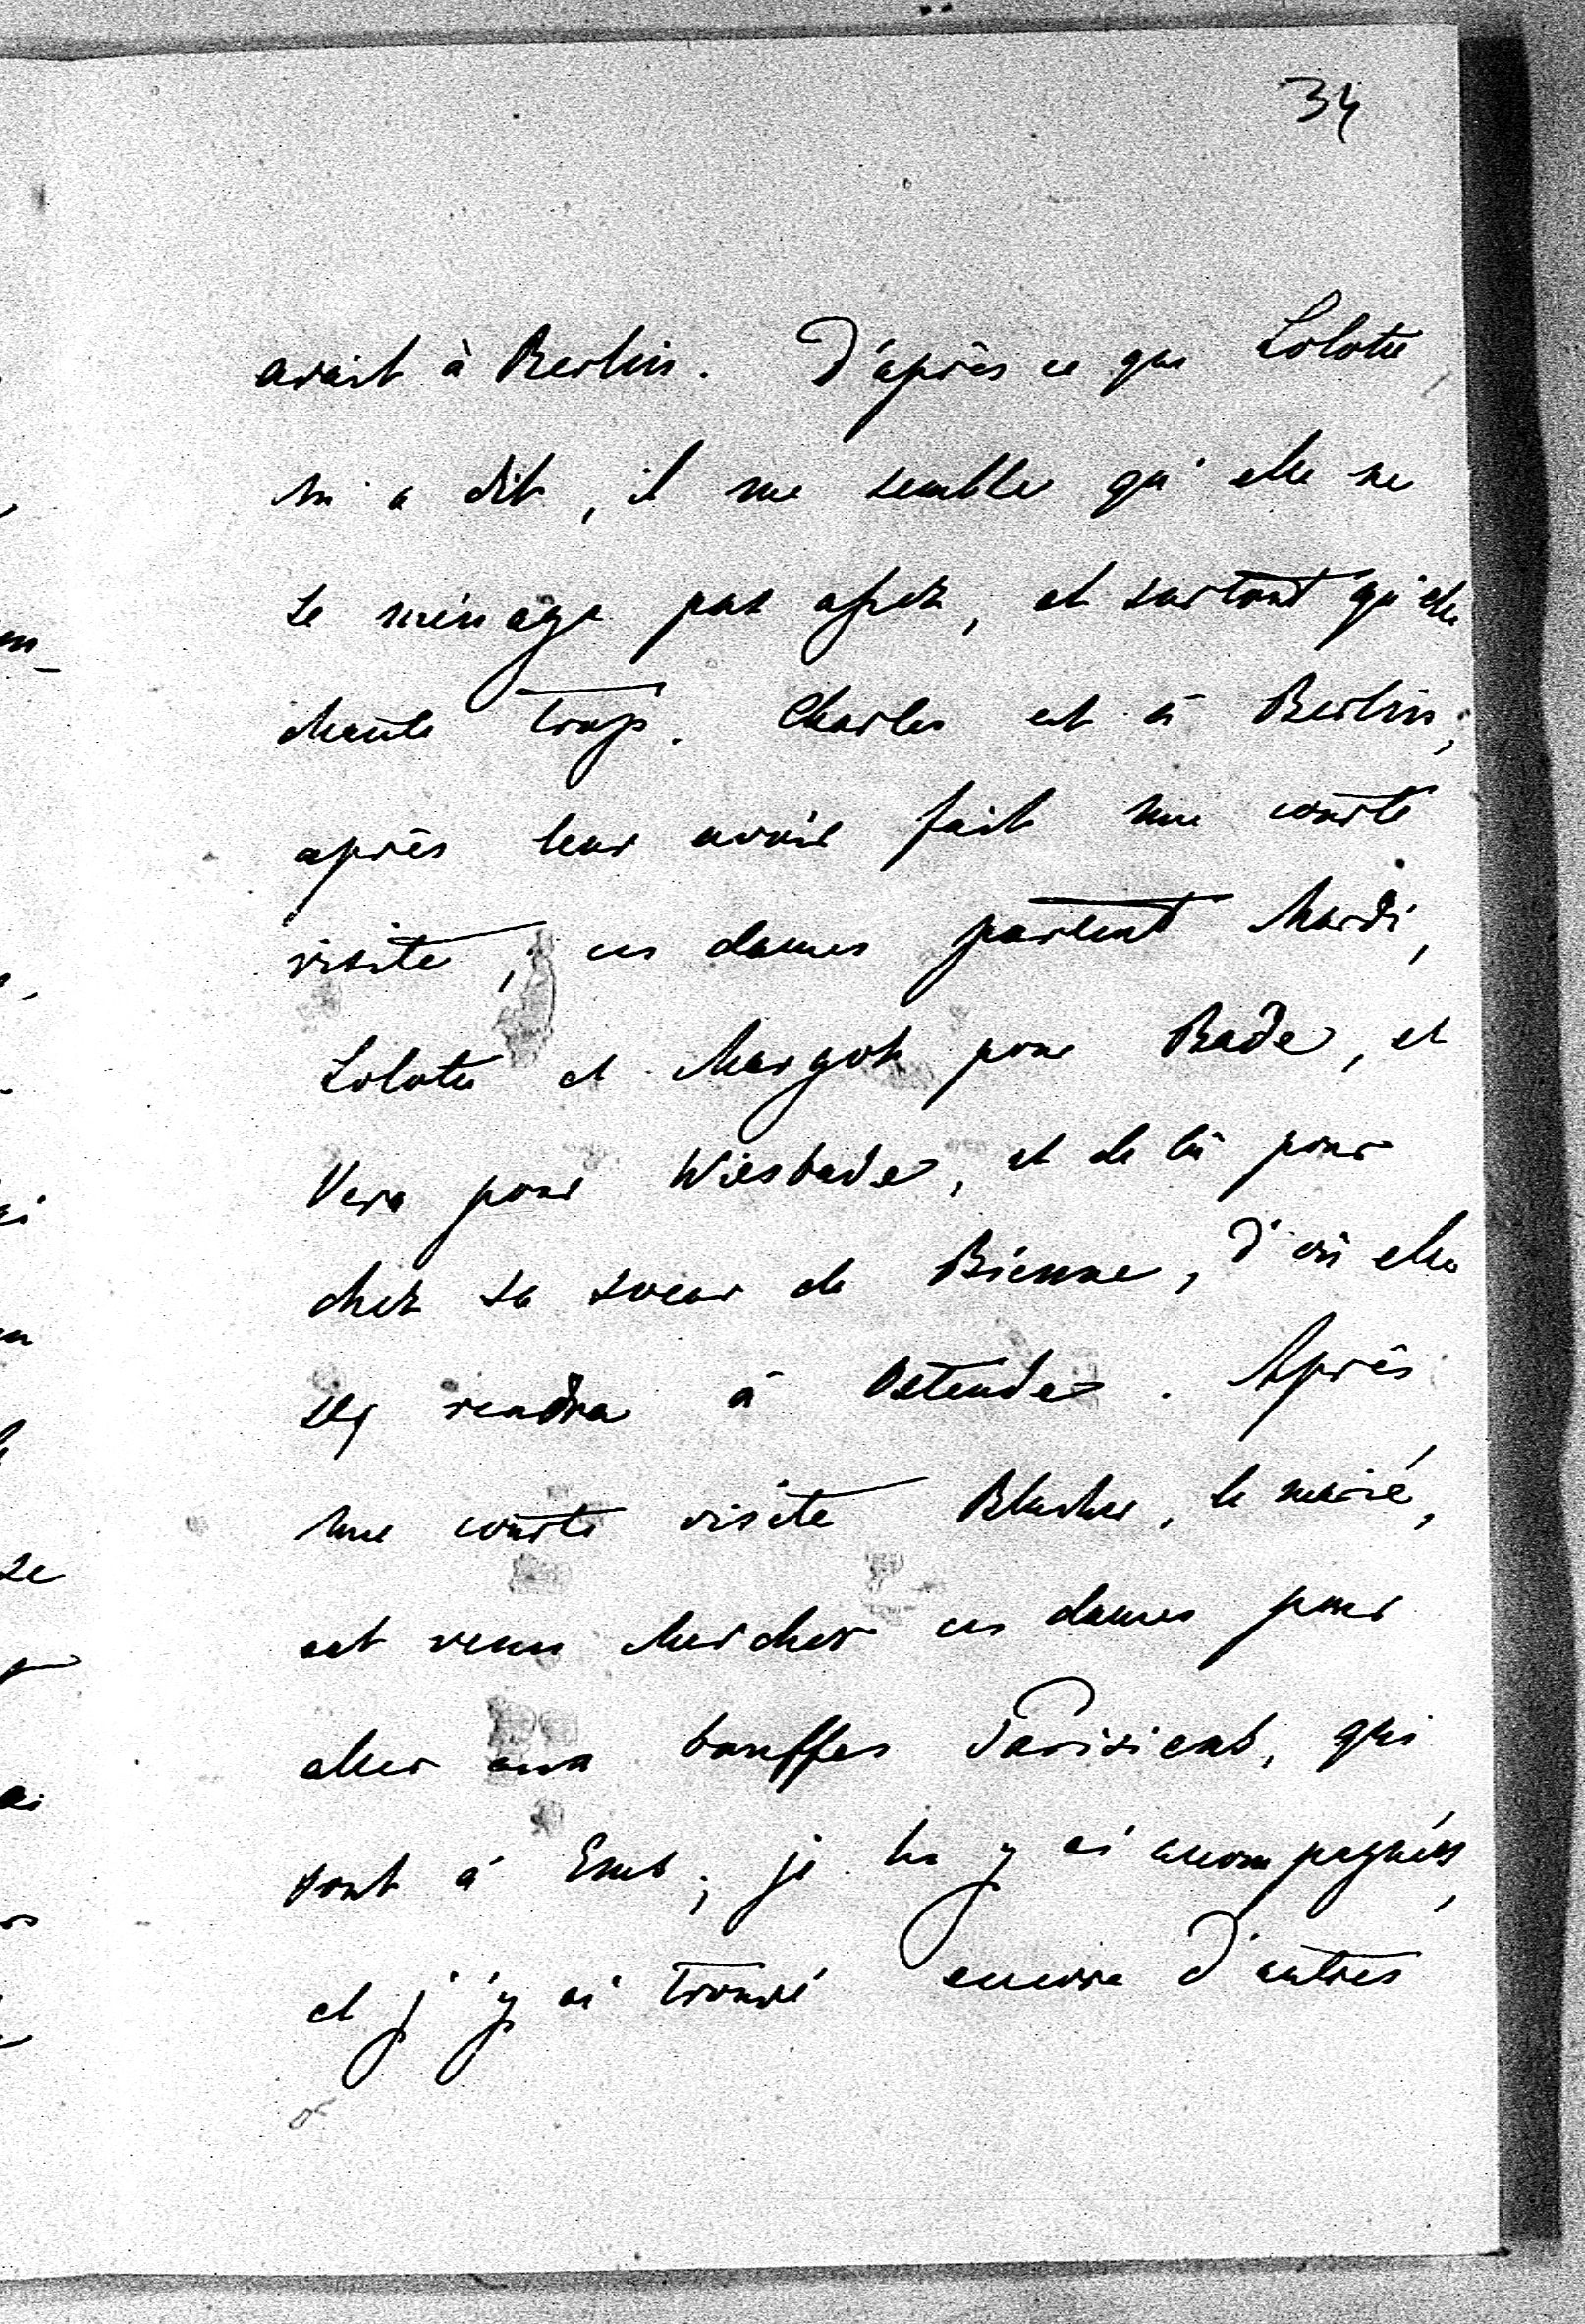 34
avait à Berlin. D'après ce que Lolotte
m'a dit, il me semble qu'elle ne
se ménage pas assez, et surtout qu'elle
chante trop. Charles est à Berlin,
après leur avoir fait une courte
visite, ces dames partent Mardi,
Lolotte et Margot pour Bade, et
Vera pour Wiesbade, et de là pour
chez sa soeur de Bienne, d'où elle
se rendra à Ostende. Après
une courte visite Blucher, le marié,
est venu chercher ces dames pour
aller aux bouffes Parisiens, qui
sont à Ems; je les y ai accompagnées,
et j'y ai trouvé encore d'autres